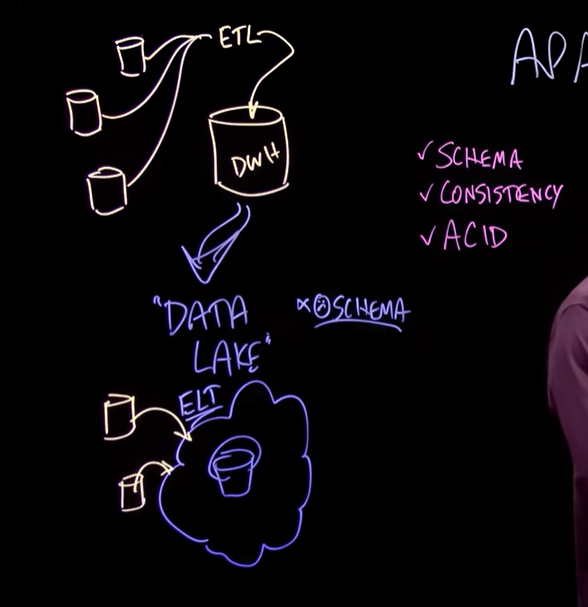 ETL
DWH
APA
✓ SCHEMA
✓ CONSISTENCY
✓ ACID
"DATA
LAKE"
× ☹ SCHEMA
ELT